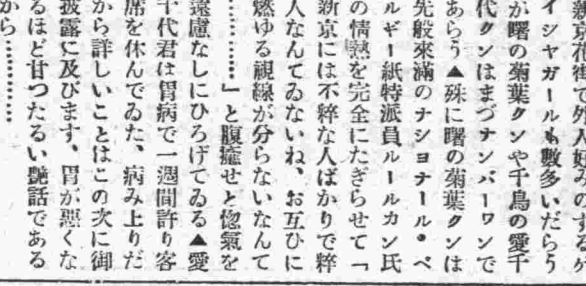 新京花街で外人好みのする外
イシヤガールも數多いだらう
が曙の菊葉クンや千鳥の愛千
代クンはまづナンバーワンで
あらう▲殊に曙の菊葉クンは
先般來滿のナシヨナール・ベ
ルギー紙特派員ルールカン氏
の情熱を完全にたぎらせて「
新京には不粹な人ばかりで粹
人なんてゐないね、お互ひに
燃ゆる視線が分らないなんて
…………」と腹癒せと惚氣を
遠慮なしにひろげてゐる▲愛
千代君は胃病で一週間許り客
席を休んでゐた、病み上りだ
から詳しいことはこの次に御
披露に及びます、胃が悪くな
るほど甘つたるい艶話である
から…………